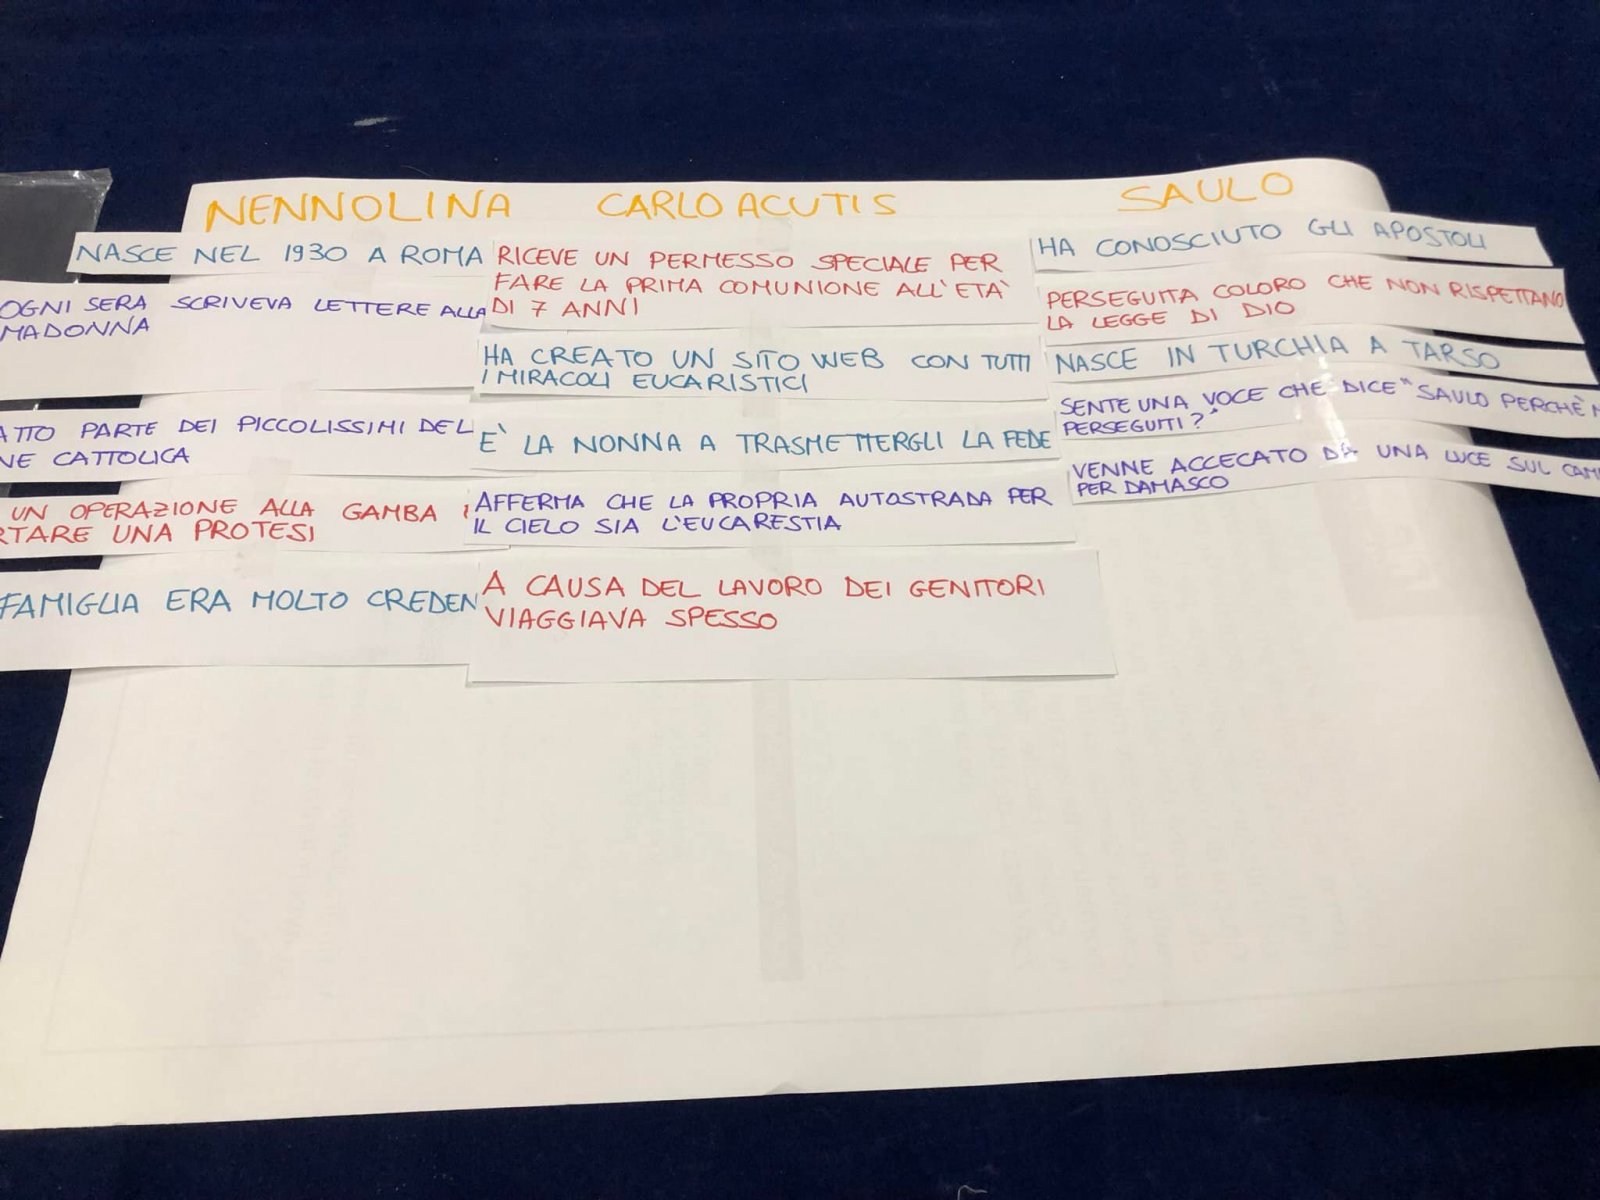 NENNOLINA
NASCE NEL 1930 A ROMA
OGNI SERA SCRIVEVA LETTERE ALLA
MADONNA
ATTO PARTE DEI PICCOLISSIMI DEL
NE CATTOLICA
UN OPERAZIONE ALLA GAMBA
RTARE UNA PROTESI
FAMIGLIA ERA MOLTO CREDEN
CARLO ACUTIS
RICEVE UN PERMESSO SPECIALE PER
FARE LA PRIMA COMUNIONE ALL'ETÀ
DI 7 ANNI
HA CREATO UN SITO WEB CON TUTTI
I MIRACOLI EUCARISTICI
È LA NONNA A TRASMETTERGLI LA FEDE
AFFERMA CHE LA PROPRIA AUTOSTRADA PER
IL CIELO SIA L'EUCARESTIA
A CAUSA DEL LAVORO DEI GENITORI
VIAGGIAVA SPESSO
SAULO
HA CONOSCIUTO GLI APOSTOLI
PERSEGUITA COLORO CHE NON RISPETTANO
LA LEGGE DI DIO
NASCE IN TURCHIA A TARSO
SENTE UNA VOCE CHE DICE "SAULO PERCHÈ M
PERSEGUITI?"
VENNE ACCECATO DA UNA LUCE SUL CAM
PER DAMASCO